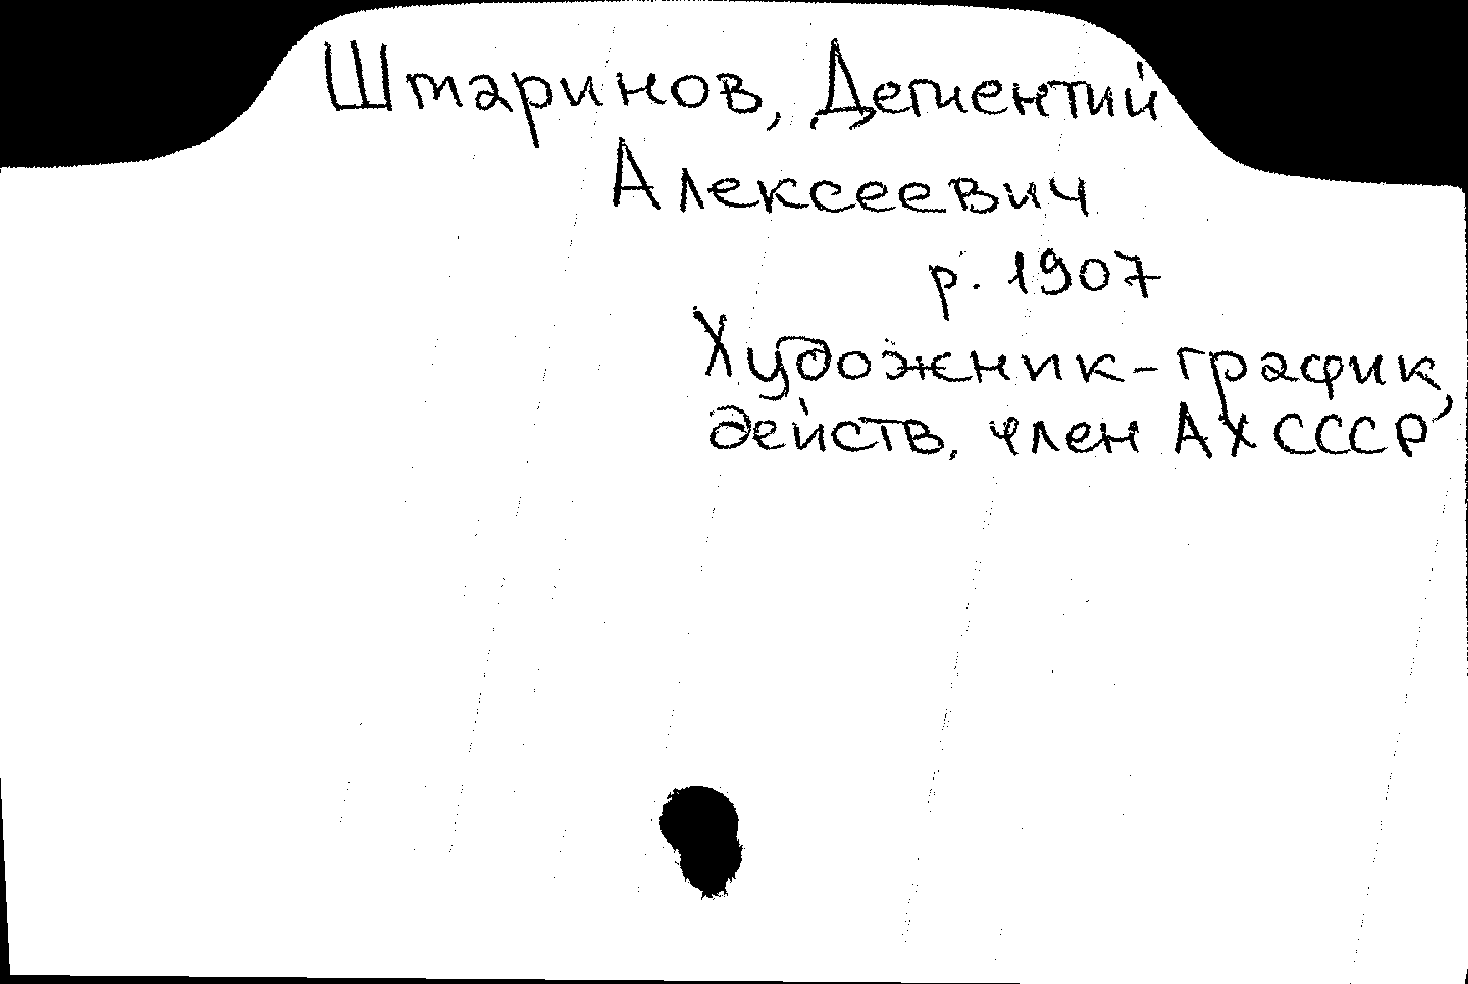 Штаринов, Дементий
Алексеевич
р. 1907
Художник-график,
действ. член АХ СССР